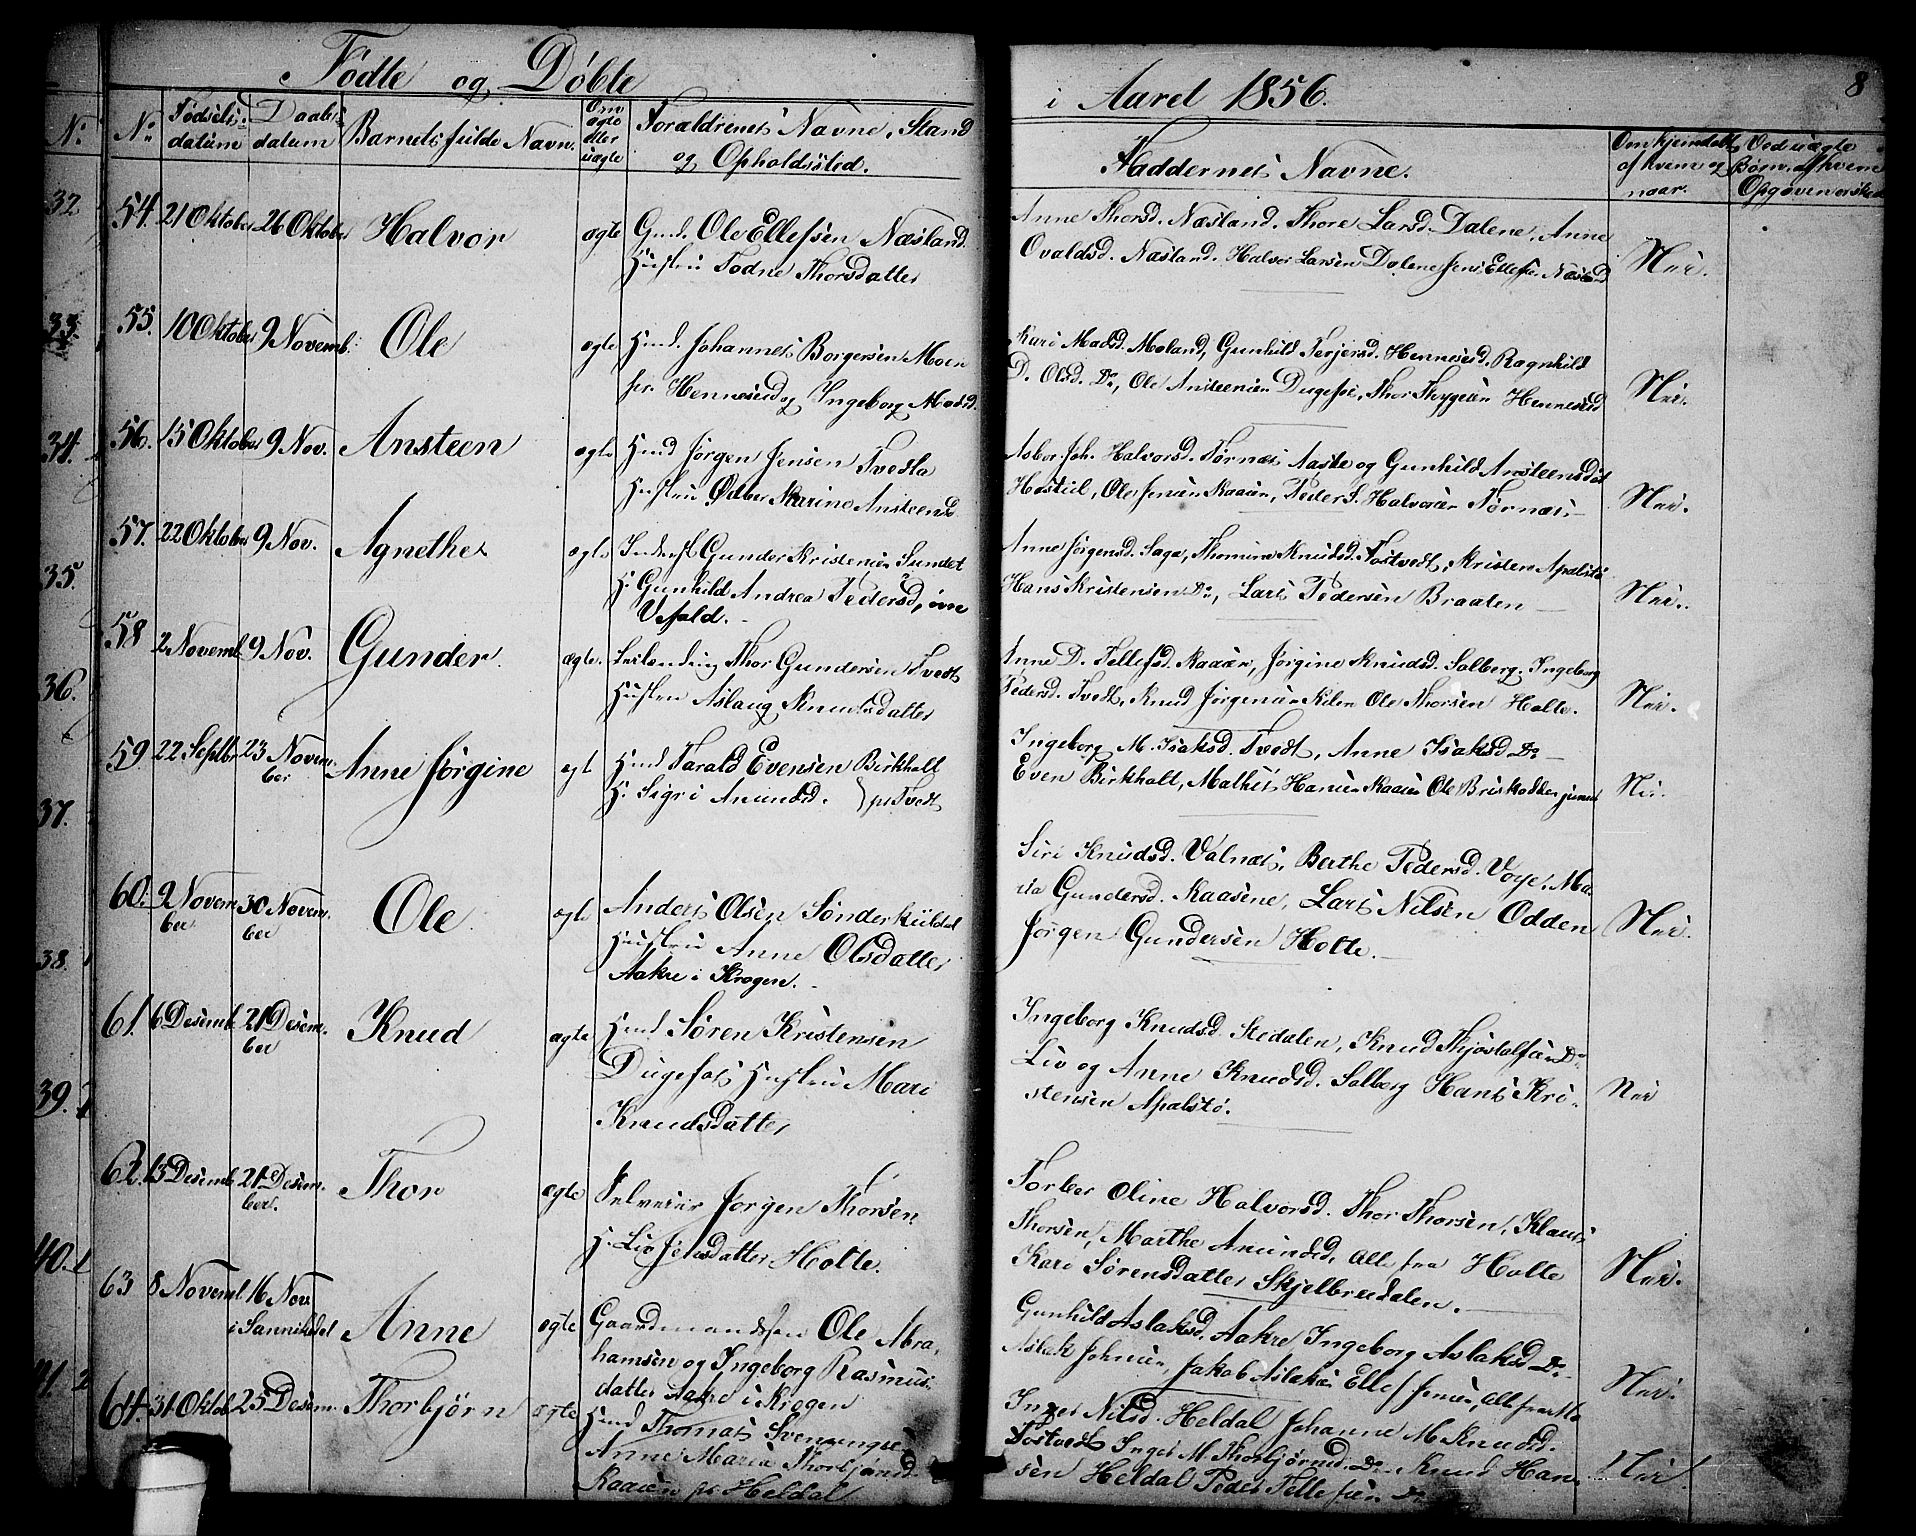 Födte og Döbte
i Aaret 1856.
8
No.
No.
Födsels-
datum
Daabs-
datum
Barnets fulde Navn.
Om
ægte
eller
uægte
Forældrenes Navne, Stand
og Opholdssted.
Faddernes Navne.
naar.
Ved uægte
32.
54. 21 Oktober 26 Oktober Halvor ægte
Ole Ellefsen Næsland.
Hustru Todne Thorsdatter
Anne Thorsd. Næsland. Thore Larsd. Dalene, Anne
Ovaldsd. Næsland. Halvor Larsen Dalene Jens Ellefsen Næsland
Nei.
33.
55. 10 Oktober 9 Novemb. Ole ægte
Hmd. Johannes Borgersen Moen
Henneseid og Ingeborg Madsd.
Kari Madsd. Moland, Gunhild Terjersd. Henneseid. Ragnhild
D. Olsd. Do, Ole Ansteensen Dugefos, Thor Thygesen Henneseid
Nei.
34.
56. 15 Oktober 9 Nov. Ansteen ægte
Hmd Jörgen Jensen Tvedta
Hustru Karine Ansteensd.
Halvorsd. Törnæs Aaste og Gunhild Ansteensdat
Ole Jensen Kaasen, Peder S. Halvorsen Törnæs.
Nei.
57. 22 Oktober 9 Nov. Agnethe ægte
Gunder Kristensen Sundet
H. Gunhild Andrea Pedersd,
Vefald.
Anne Jörgensd. Saga, Thomine Knudsd. Tostvedt, Kristen Apalstö
Hans Kristensen Do, Lars Pedersen Braaten
Nei.
35.
58 2 Novemb. 9 Nov. Gunder. ægte.
Thor Gundersen Tvedt
Hustru Aslaug Knudsdatter
Anne D. Tellefsd. Kaasen, Jörgine Knudsd. Solberg, Ingeborg
Pedersd. Tvedt, Knud Jörgensen Kilen Ole Thorsen Holte.
Nei.
36.
59 22 Septbr. 23 Novem-
ber Anne Jörgine ægt
Hmd Tarald Evensen Birkholt
H. Sigri Anundsd. pt Tvedt
Ingeborg M. Isaksd. Tvedt, Anne Isaksd Do
Even Birkholt, Mathis Hansen Kaasen Ole Briskodden junior
Nei.
37.
60. 9 Novem-
ber 30 Novem-
ber Ole ægte
Anders Olsen Sönderkiildal
Hustru Anne Olsdatter
Aakre i Krogen.
Siri Knudsd. Valnæs, Berthe Pedersd. Voje, Ma-
ria Gundersd. Kaasene, Lars Nilsen Odden
Jörgen Gundersen Holte.
Nei.
38.
61. 6 Desemb. 21 Desem-
ber Knud ægte
Hmd. Sören Kristensen
Dugefos Hustru Mari
Knudsdatter
Ingeborg Knudsd. Stidalen, Knud Thjöstolfsen Do
Liv og Anne Knudsd. Solberg Hans Kri-
stensen Apalstö.
Nei
39.
62. 13 Desemb. 21 Desem-
ber. Thor ægte
Selveier Jörgen Thorsen
H. Liv Jensdatter Holte.
Torber Oline Halvorsd. Thor Thorsen, Klaus
Thorsen, Marthe Anundsd, alle fra Holte
Kari Sörensdatter Skjelbredalen.
Nei.
40.
63 8 Novemb. 16 Nov.
i Sannikedal Anne ægte
Ole Abra-
hamsen og Ingeborg Rasmus-
datter Aakre i Krogen
Gunhild Aslaksd. Aakre Ingeborg Aslaksd Do
Aslak Johnsen, Jakob Aslaksen Ellef Jensen, alle fra
Nei.
41.
64. 31 Oktob. 25 Desem. Thorbjörn ægte
Hmd Thomas Svenungs.
Anne Maria Thorbjörnsd.
Kaasen pt Heldal
Inger Nilsd. Heldal Johanne M. Knudsd.
Tostvedt Inger M. Thorbjörnsd. Do Knud Han-
sen Heldal Peder Tellefsen Do
Nei